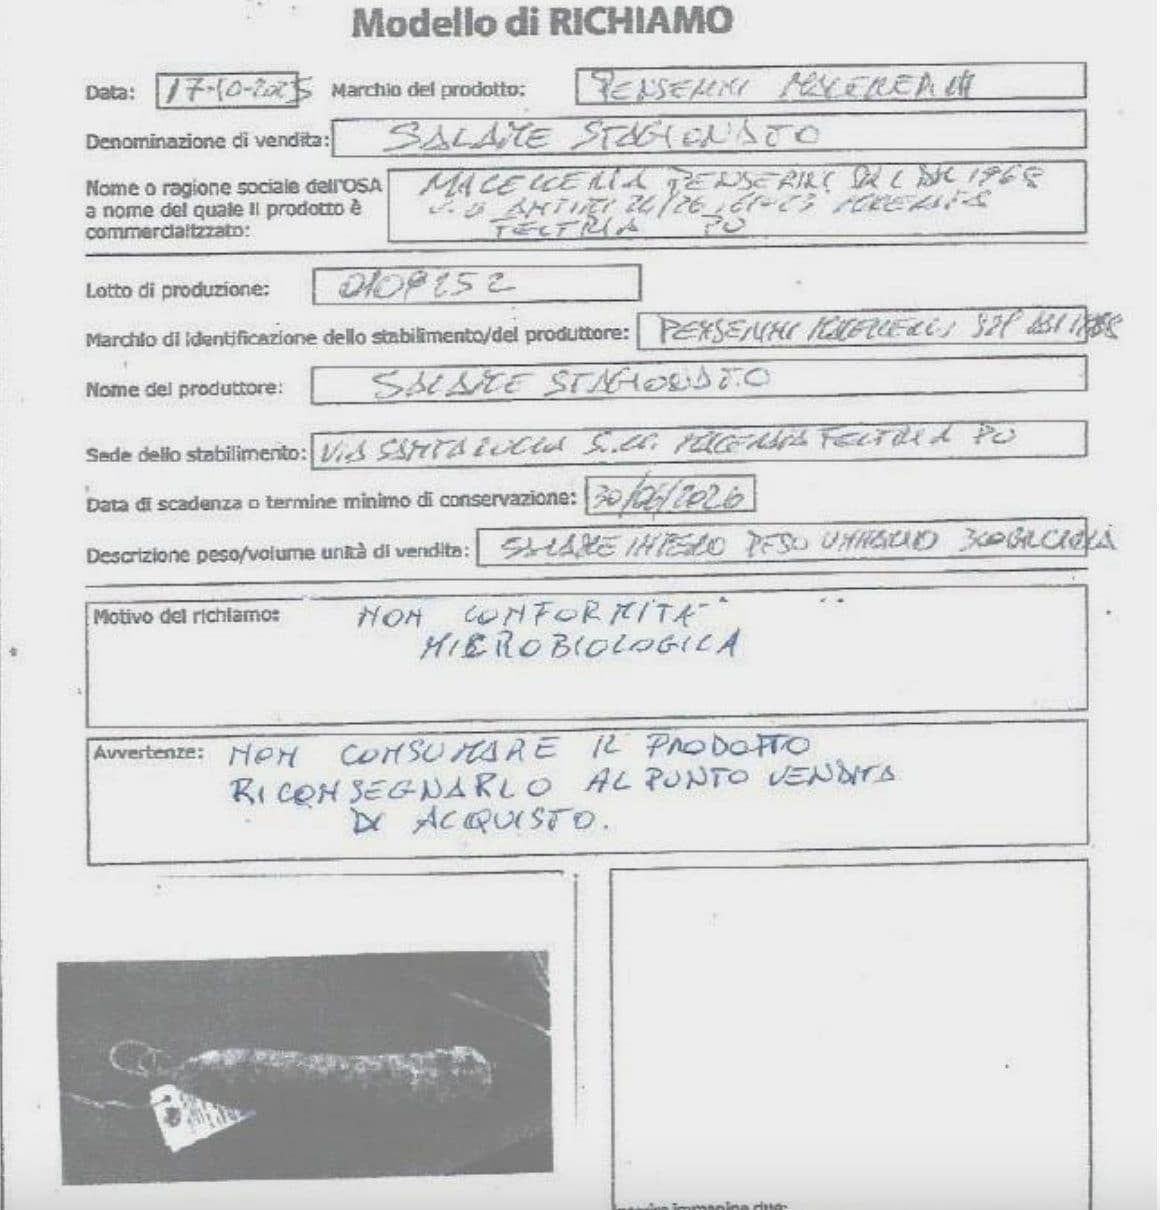 Modello di RICHIAMO
Data: 17-10-2025 Marchio del prodotto:
Denominazione di vendita: SALAME STAGIONATO
Nome o ragione sociale dell'OSA
a nome del quale il prodotto è
commercializzato:
MACELLERIA PENSERINI DAL 1968
24/26
FELTRIA PU
Lotto di produzione: 0109252
Marchio di identificazione dello stabilimento/del produttore: PENSERINI MACELLERIA
Nome del produttore: SALAME STAGIONATO
Sede dello stabilimento: VIA SANTA LUCIA MACERATA FELTRIA PU
Data di scadenza o termine minimo di conservazione: 30/06/2026
Descrizione peso/volume unità di vendita: SALAME INTERO PESO
Motivo del richiamo: NON CONFORMITA'
MICROBIOLOGICA
Avvertenze: NON CONSUMARE IL PRODOTTO
RICONSEGNARLO AL PUNTO VENDITA
DI ACQUISTO.